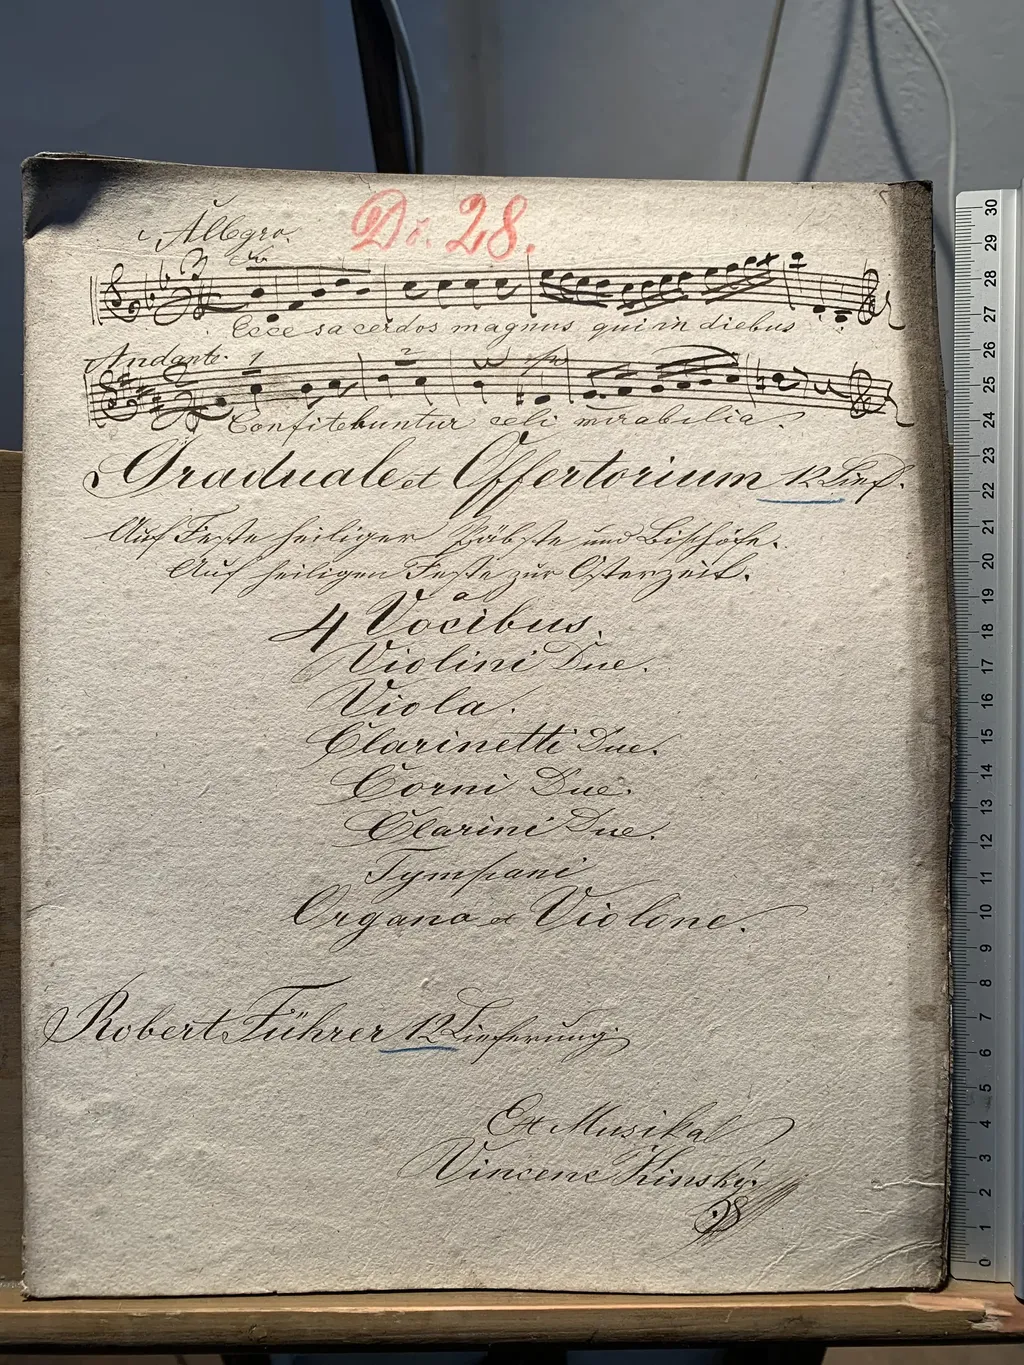 Do. 28.
Allegro.
Ecce sacerdos magnus qui in diebus
Andante. 1 2
Confitebuntur celi mirabilia.
Graduale et Offertorium 12 Lief.
Auf Feste heiliger Päbste und Bischöfe.
Auf heiligen Feste zur Osterzeit.
a
4 Vocibus.
Violini Due.
Viola.
Clarinetti Due.
Corni Due.
Clarini Due.
Tympani
Organo et Violone.
Robert Führer 12 Lieferung
Ex Musikal
Vincenc Kinský
30
29
28
27
26
25
24
23
22
21
20
19
18
17
16
15
14
13
12
11
10
9
8
7
6
5
4
3
2
1
0